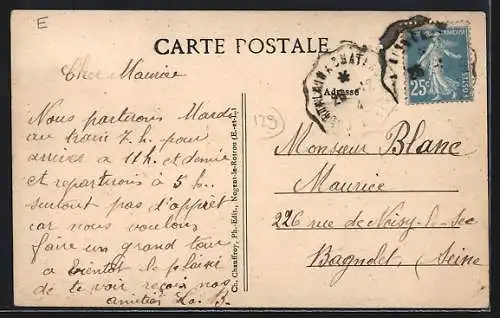 E
CARTE POSTALE
Cher Maurice
Nous partirons Mardi
au train 7 h. pour
arriver a 11h. et demie
et repartirons à 5 h..
surtout pas d'apprêt
car nous voulons
faire un grand tour
a bientôt le plaisir
de te voir reçois nos
amitiés L. B.
Ch. Chauffroy, Ph.-Édit., Nogent-le-Rotrou (E.-et-L.)
129
Adresse
25c
Monsieur Blanc
Maurice
226 rue de Noisy-le-Sec
Bagnolet Seine